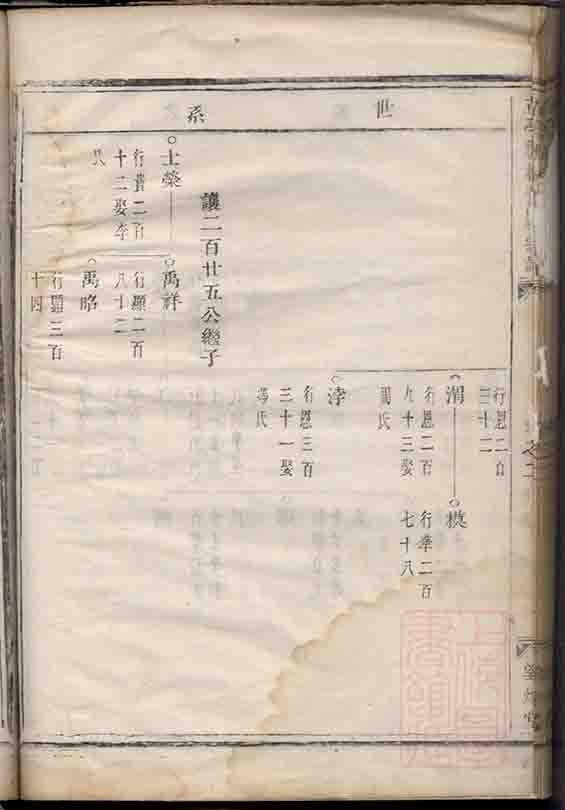 世系
行恩二百
三十二
渭
行恩二百
九十三娶
周氏
模
行華二百
七十八
浡
行恩三百
三十一娶
馮氏
讓二百廿五公繼子
士榮
行貴二百
十二娶李
氏
禹詳
行顯二百
八十二
禹略
行顯三百
十四
上海圖書館藏